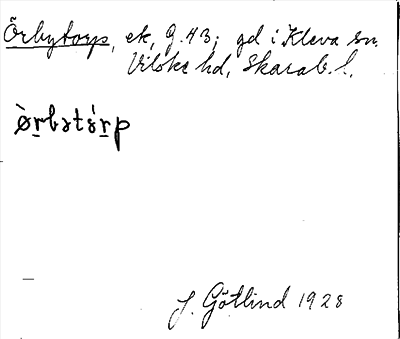 Örbytorp, ek, G. 43; gd i Kleva sn.
Vilske hd, Skarab. l.
ò̱rbətó̱rp
J. Götlind 1928